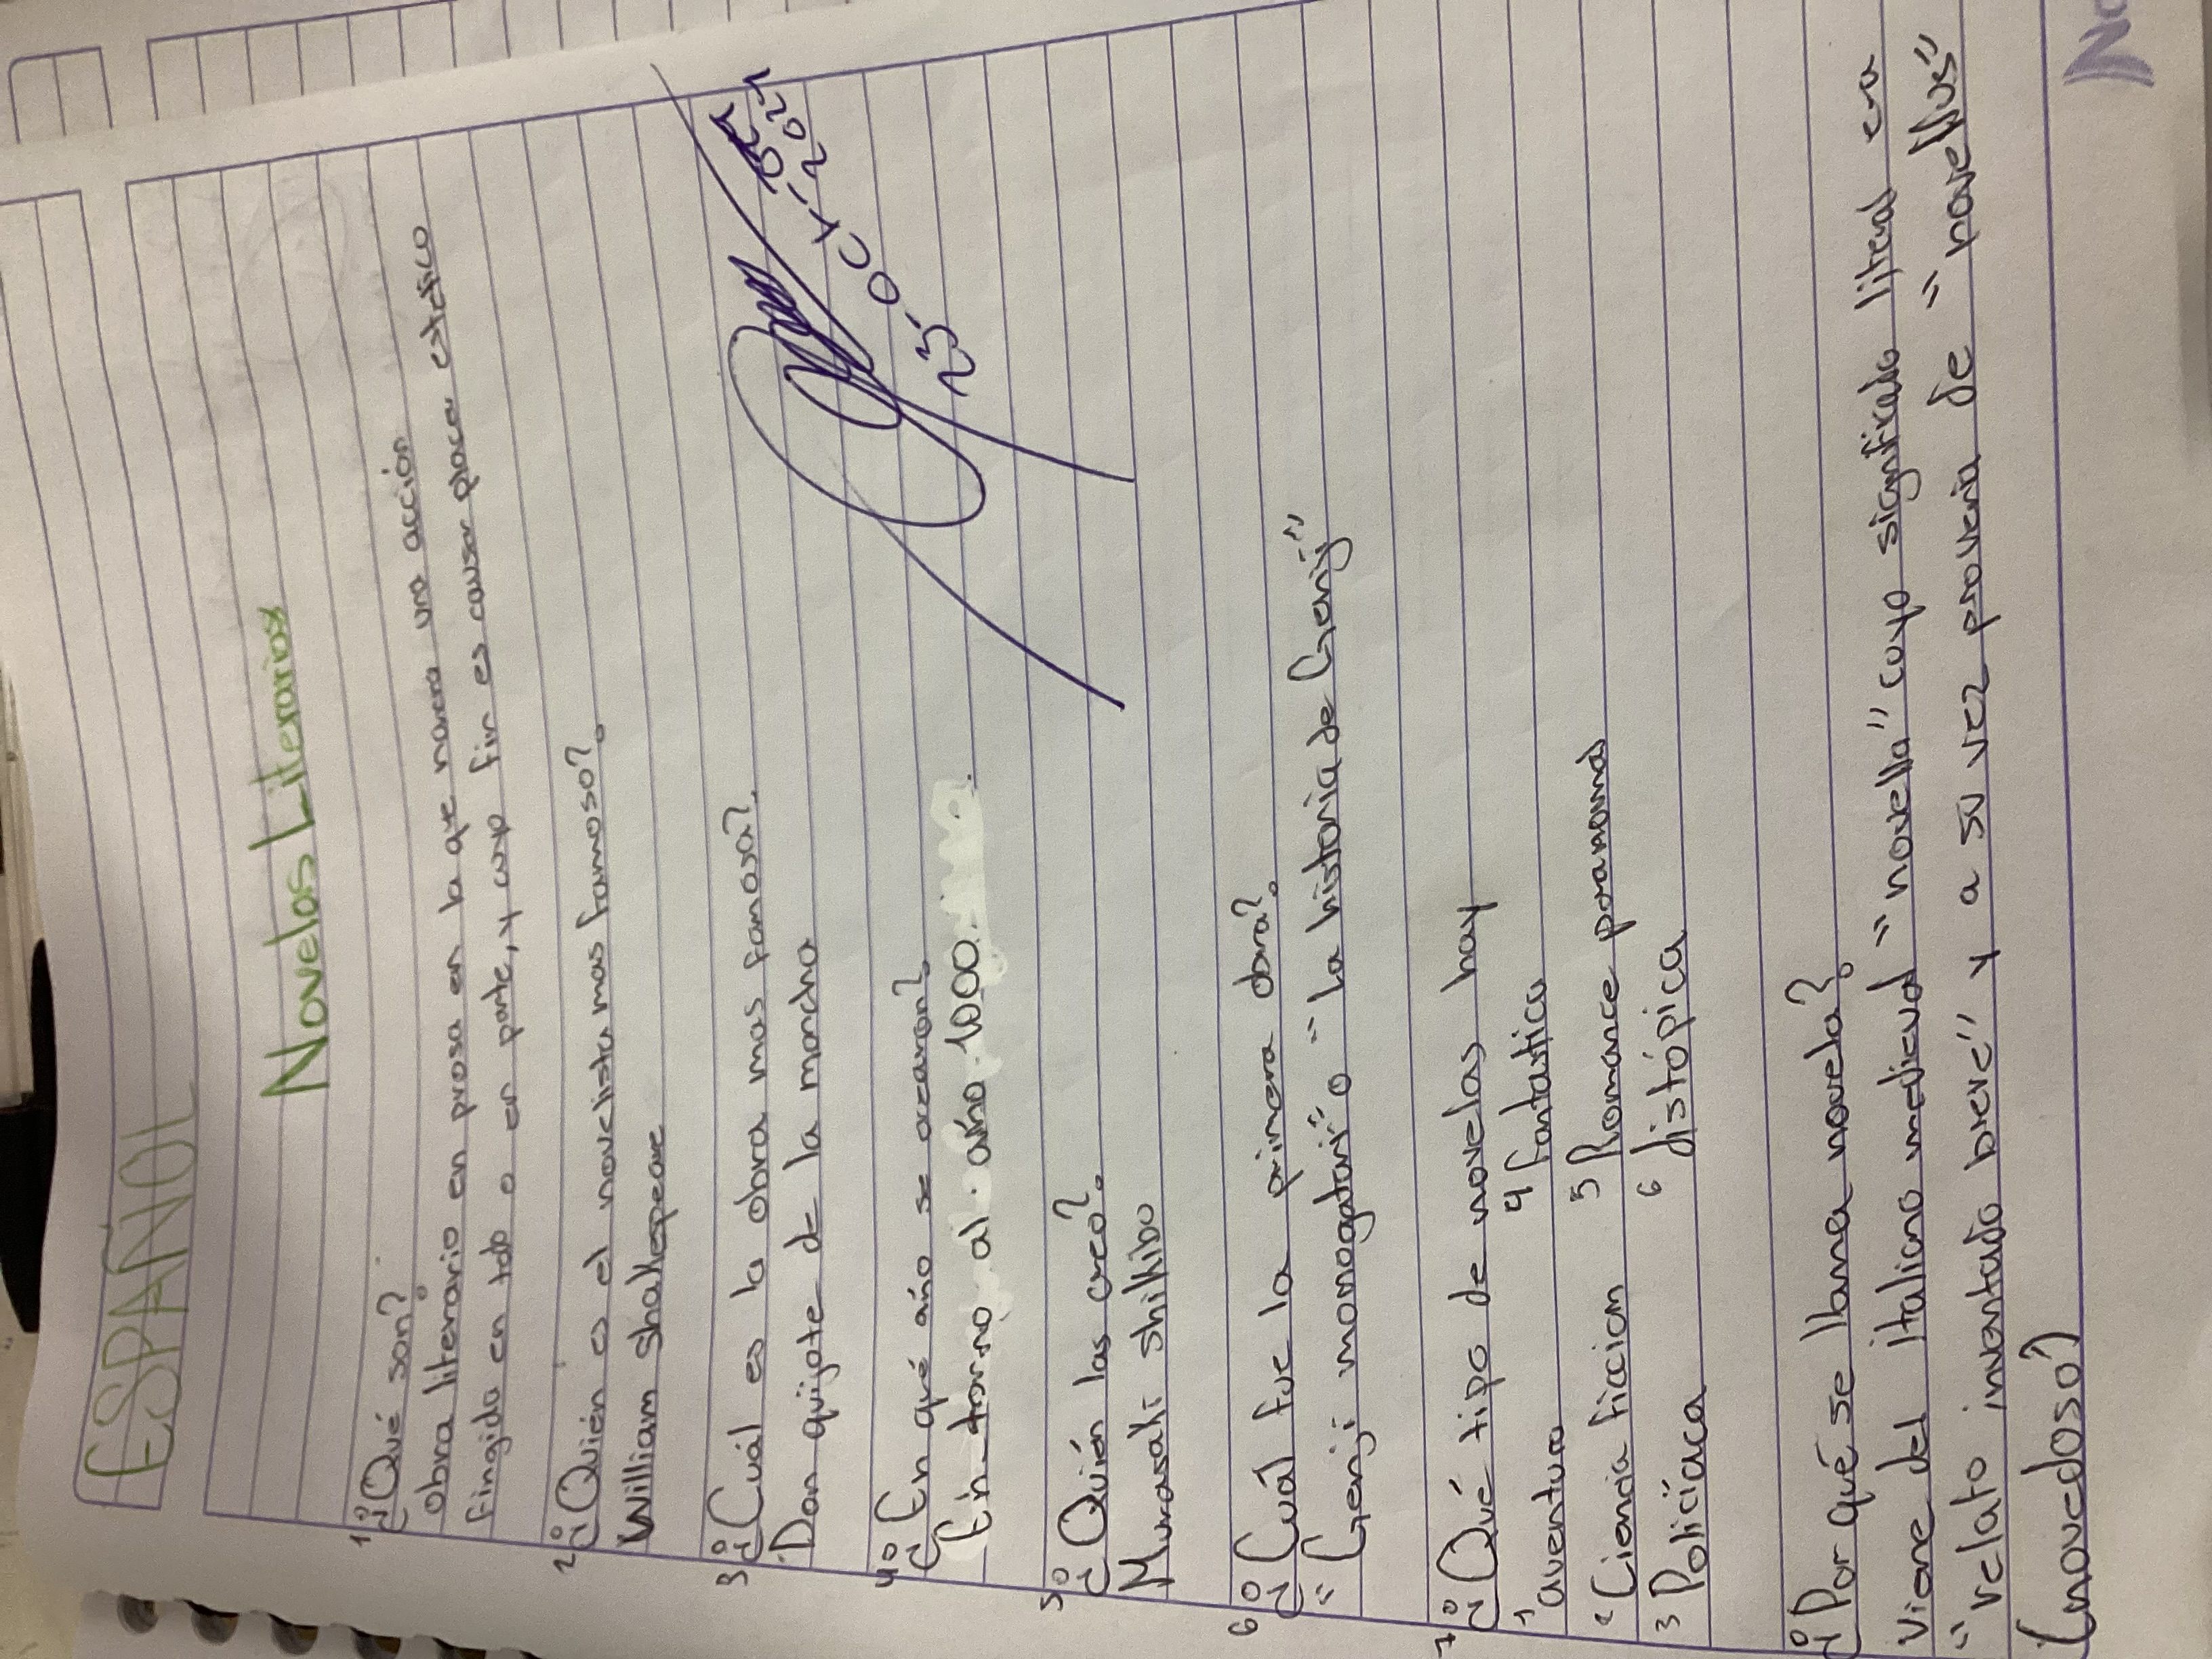 ESPAÑOL
Novelas Literarias
1 ¿Qué son?
Obra literario en prosa en la que narra una acción
fingida en todo o en parte, y cuyo fin es causar placer estético
2 ¿Quién es el novelista mas famoso?
William Shakespeare
3 ¿Cuál es la obra mas famosa?
Don quijote de la mancha
4 ¿En qué año se crearon?
En torno al año 1000.
23-OCT-2024
5 ¿Quién las creo?
Murasaki Shikibo
6 ¿Cuál fue la primera obra?
"Genji monogatari" o "la historia de Genji"
7 ¿Qué tipo de novelas hay
1 aventura 4 fantastica
2 Ciencia ficcion 5 Romance paranormal
3 Policíaca 6 distópica
¿Por qué se llama novela?
Viene del italiano medieval "novella" cuyo significado literal era
"relato inventado breve" y a su vez provenia de "novellus"
(novedoso)